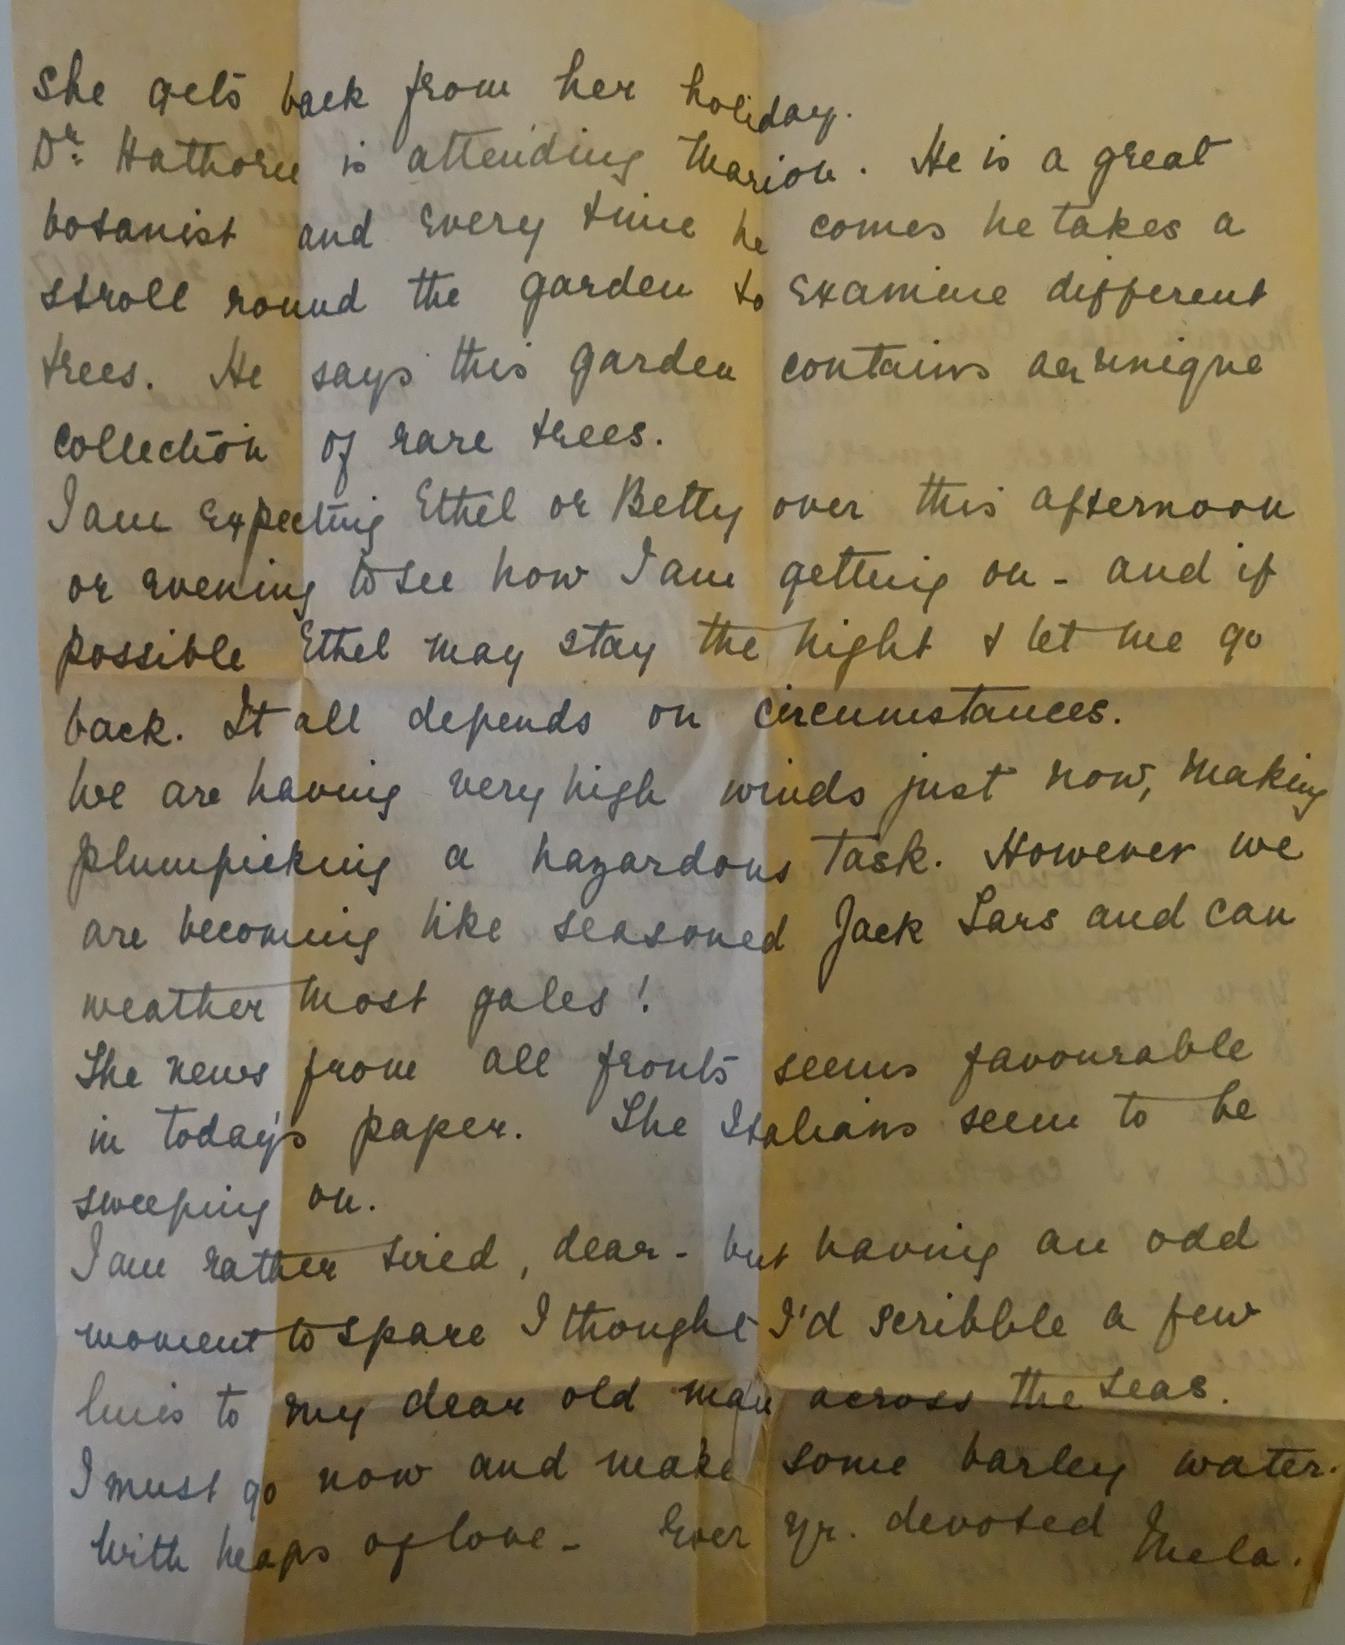 she gets back from her holiday.
Dr. Hathorn is attending Marion. He is a great
botanist and every time he comes he takes a
stroll round the garden to examine different
trees. He says this garden contains an unique
collection of rare trees.
I am expecting Ethel or Betty over this afternoon
or evening to see how I am getting on - and if
possible Ethel may stay the night & let me go
back. It all depends on circumstances.
We are having very high winds just now, making
plumpicking a hazardous task. However we
are becoming like seasoned Jack Tars and can
weather most gales!
The news from all fronts seems favourable
in today's paper. The Italians seem to be
sweeping on.
I am rather tired, dear - but having an odd
moment to spare I thought I'd scribble a few
lines to my dear old man across the seas.
I must go now and make some barley water.
With heaps of love - Ever yr. devoted